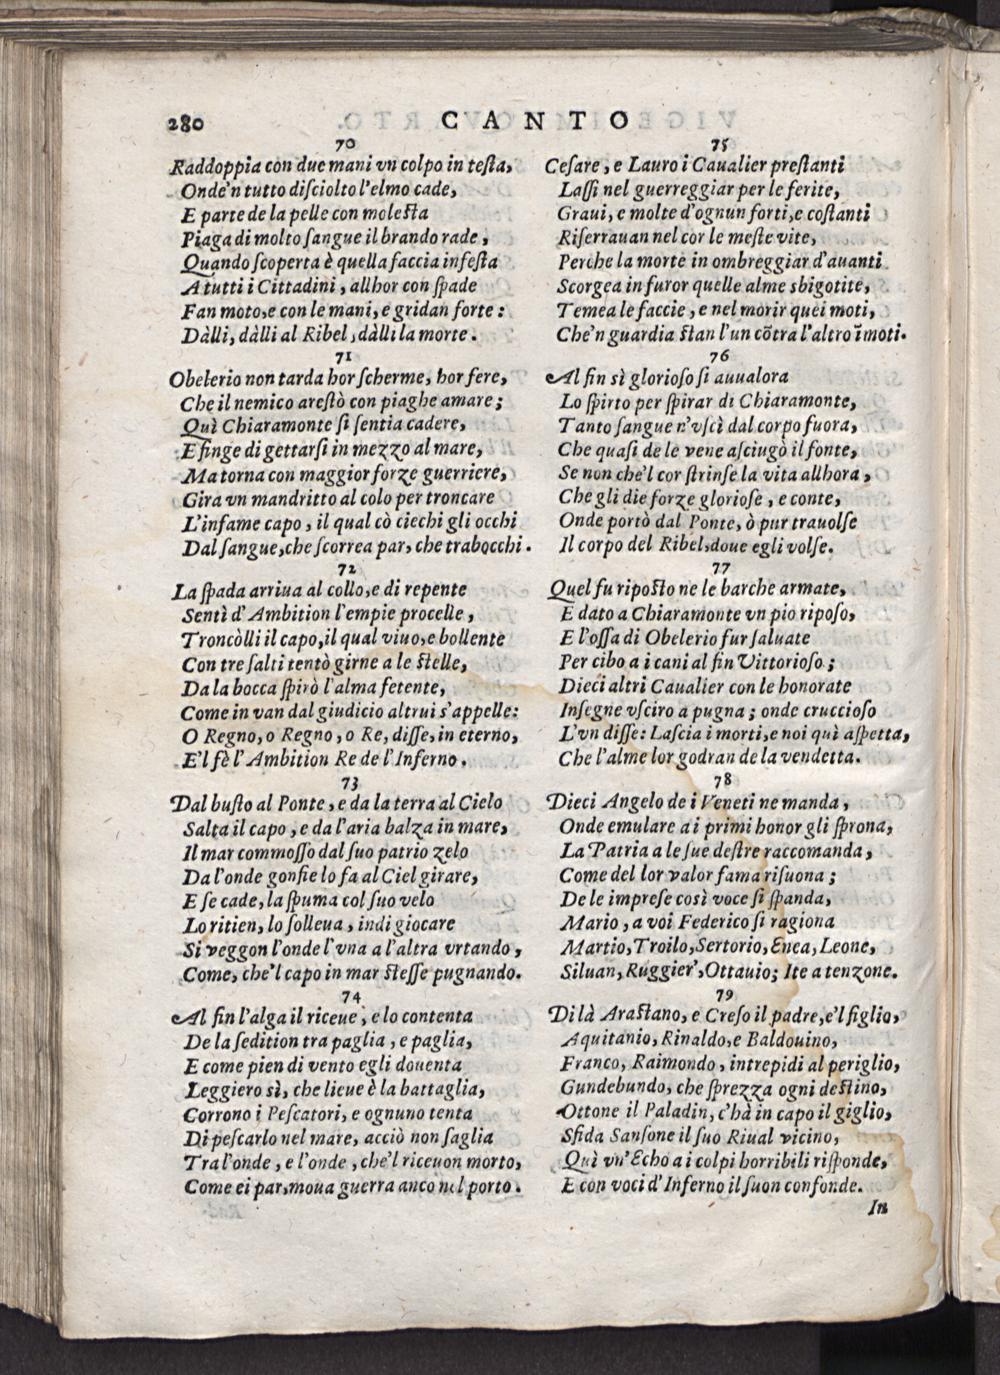 280 CANTO
70
Raddoppia con due mani vn colpo in teſta,
Onde'n tutto diſciolto l'elmo cade,
E parte de la pelle con moleſta
Piaga di molto ſangue il brando rade,
Quando ſcoperta è quella faccia infeſta
A tutti i Cittadini, allhor con ſpade
Fan moto, e con le mani, e gridan forte:
Dàlli, dàlli al Ribel, dàlli la morte.
71
Obelerio non tarda hor ſcherme, hor fere,
Che il nemico areſtò con piaghe amare;
Quì Chiaramonte ſi ſentia cadere,
E finge di gettarſi in mezzo al mare,
Ma torna con maggior forze guerriere,
Gira vn mandritto al colo per troncare
L'infame capo, il qual cò ciechi gli occhi
Dal ſangue, che ſcorrea par, che trabocchi.
72
La ſpada arriua al collo, e di repente
Sentì d'Ambition l'empie procelle,
Troncòlli il capo, il qual viuo, e bollente
Con tre ſalti tentò girne a le ſtelle,
Da la bocca ſpirò l'alma fetente,
Come in van dal giudicio altrui s'appelle:
O Regno, o Regno, o Re, diſſe, in eterno,
E'l fè l'Ambition Re de l'Inferno.
73
Dal buſto al Ponte, e da la terra al Cielo
Salta il capo, e da l'aria balza in mare,
Il mar commoſſo dal ſuo patrio zelo
Da l'onde gonfie lo fa al Ciel girare,
E ſe cade, la ſpuma col ſuo velo
Lo ritien, lo ſolleua, indi giocare
Si veggon l'onde l'vna a l'altra vrtando,
Come, che'l capo in mar ſteſſe pugnando.
74
Al fin l'alga il riceue, e lo contenta
De la ſedition tra paglia, e paglia,
E come pien di vento egli douenta
Leggiero sì, che lieue è la battaglia,
Corrono i Peſcatori, e ognuno tenta
Di peſcarlo nel mare, acciò non ſaglia
Tra l'onde, e l'onde, che'l riceuon morto,
Come ei par, moua guerra anco nel porto.
75
Ceſare, e Lauro i Caualier preſtanti
Laſſi nel guerreggiar per le ferite,
Graui, e molte d'ognun forti, e coſtanti
Riſerrauan nel cor le meſte vite,
Perche la morte in ombreggiar d'auanti
Scorgea in furor quelle alme sbigotite,
Temea le faccie, e nel morir quei moti,
Che'n guardia ſtan l'un cõtra l'altro ĩmoti.
76
Al fin sì glorioſo ſi auualora
Lo ſpirto per ſpirar di Chiaramonte,
Tanto ſangue n'vſcì dal corpo fuora,
Che quaſi de le vene aſciugò il fonte,
Se non che'l cor ſtrinſe la vita allhora,
Che gli die forze glorioſe, e conte,
Onde portò dal Ponte, ò pur trauolſe
Il corpo del Ribel, doue egli volſe.
77
Quel fu ripoſto ne le barche armate,
E dato a Chiaramonte vn pio ripoſo,
E l'oſſa di Obelerio fur ſaluate
Per cibo a i cani al fin Vittorioſo;
Dieci altri Caualier con le honorate
Inſegne vſciro a pugna; onde cruccioſo
L'vn diſſe: Laſcia i morti, e noi quì aſpetta,
Che l'alme lor godran de la vendetta.
78
Dieci Angelo de i Veneti ne manda,
Onde emulare a i primi honor gli ſprona,
La Patria a le ſue deſtre raccomanda,
Come del lor valor fama riſuona;
De le impreſe così voce ſi ſpanda,
Mario, a voi Federico ſi ragiona
Martio, Troilo, Sertorio, Enea, Leone,
Siluan, Ruggier', Ottauio; Ite a tenzone.
79
Di là Araſtano, e Creſo il padre, e'l figlio,
Aquitanio, Rinaldo, e Baldouino,
Franco, Raimondo, intrepidi al periglio,
Gundebundo, che ſprezza ogni deſtino,
Ottone il Paladin, c'hà in capo il giglio,
Sfida Sanſone il ſuo Riual vicino,
Quì vn'Echo a i colpi horribili riſponde,
E con voci d'Inferno il ſuon confonde.
In